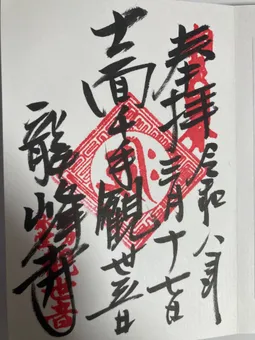 令和八年
奉拝三月十七日
十一面千手観世音
龍峰寺